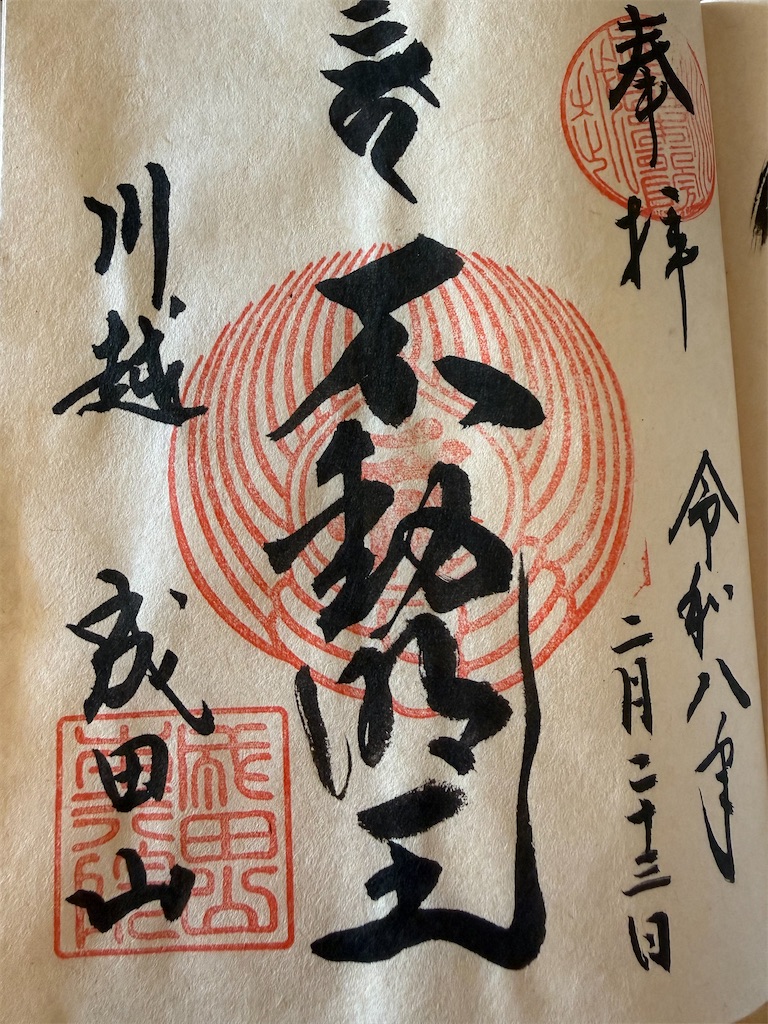 奉拝
令和八年
二月二十三日
不動明王
川越
成田山
成田山
本行院